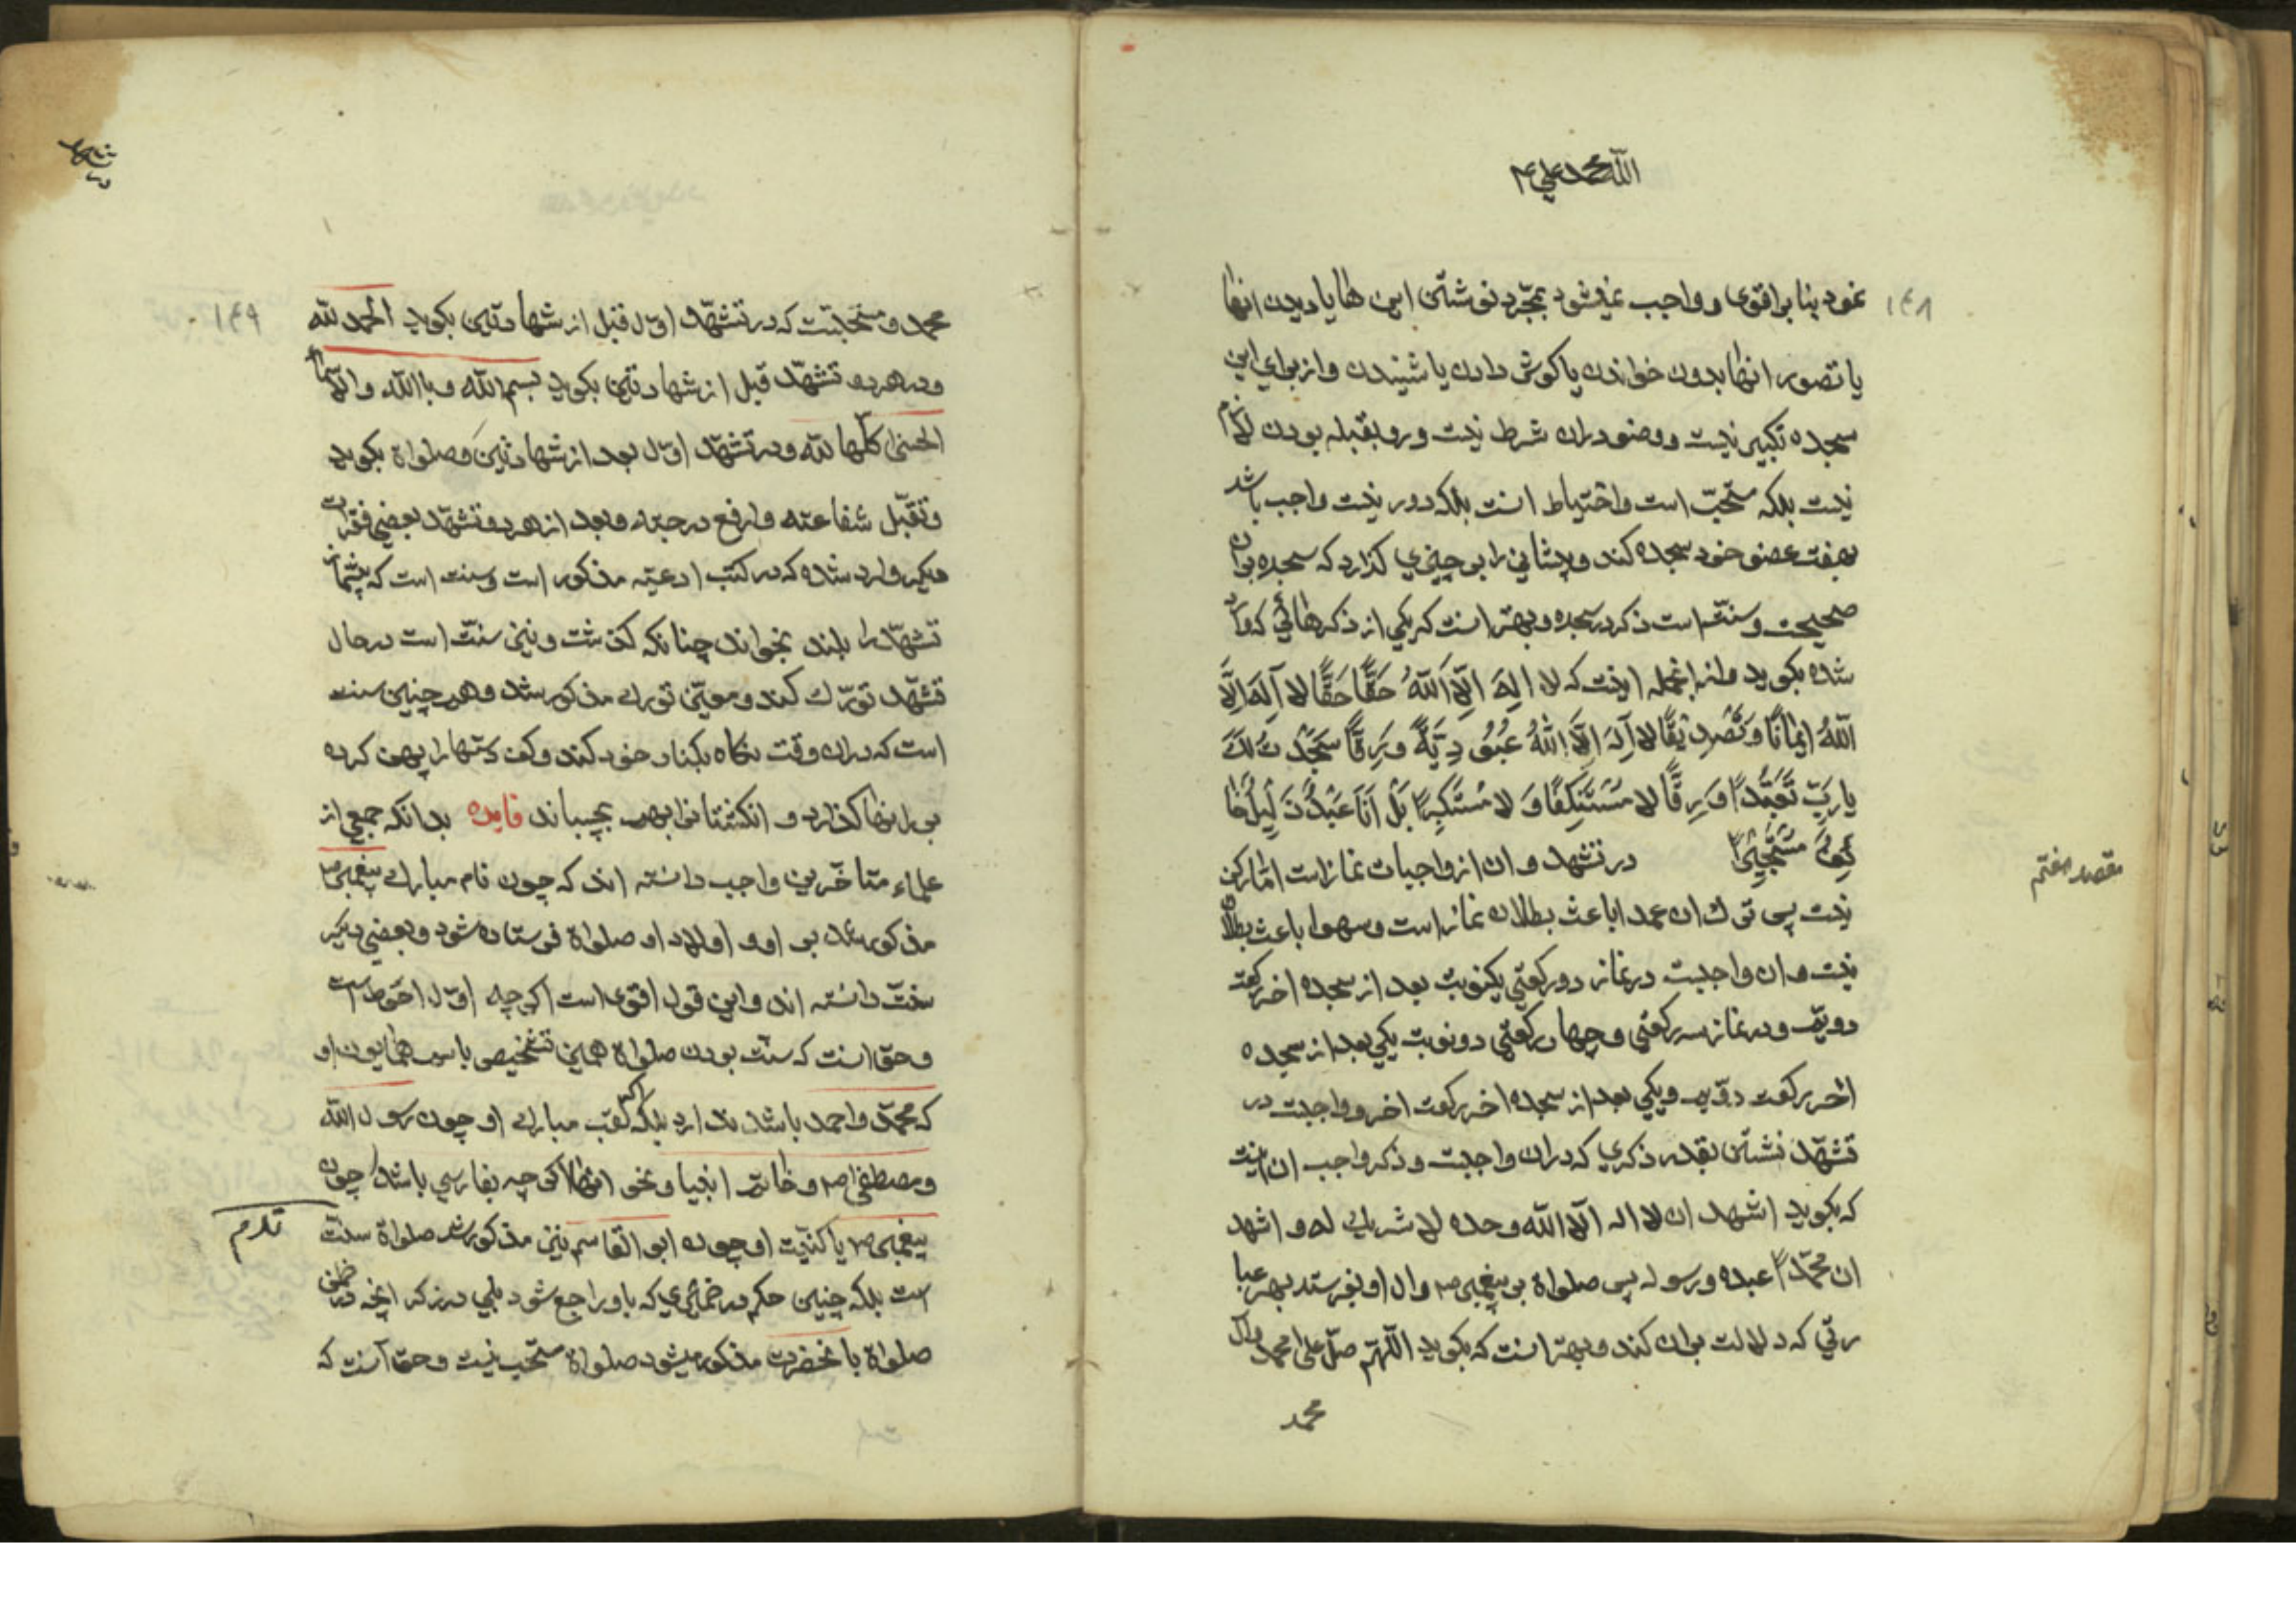 الله محمد علی
۱۴۸
نمود بنا بر اقوی و واجب نمیشود بمجرّد نوشتن این ها یا دیدن انها
یا تصور انها بدون خواندن یا کوش دادن یا شنیدن و از برای این
سجده تکبیر نیست و وضو دران شرط نیست و رو بقبله بودن لازم
نیست بلکه مستحبّ است واحتیاط انست بلکه دور نیست واجب باشد
بهفت عضو خود سجده کند و پیشانی را بر چیزی کذارد که سجده بران
صحیحست و سنّت است ذکر در سجده و بهتر انست که یکی از ذکرهائی که وارد
شده بکوید و از انجمله اینست که لا اِلهَ اِلَّا اللهُ حَقًّا حَقًّا لا اِلهَ اِلَّا
اللهُ ایمانًا وَ تَصْدیقًا لا اِلهَ اِلَّا اللهُ عُبُودِیَّةً وَ رِقًّا سَجَدْتُ لَكَ
یا رَبِّ تَعَبُّدًا وَ رِقًّا لا مُسْتَنْکِفًا وَ لا مُسْتَکْبِرًا بَلْ اَنَا عَبْدٌ ذَلیلٌ خا
ئِفٌ مُسْتَجیرٌ در تشهد و ان از واجبات نماز است امّا رکن
مقصد هفتم
نیست پس ترك ان عمدا باعث بطلان نماز است و سهوا باعث بطلان
نیست و ان واجبست در نماز دو رکعتی یکنوبت بعد از سجده اخر رکعت
دویّم و در نماز سه رکعتی و چهار رکعتی دو نوبت یکی بعد از سجده
اخر رکعت دویّم و یکی بعد از سجده اخر رکعت اخر و واجبست در
تشهّد نشستن بقدر ذکری که دران واجبست و ذکر واجب ان اینست
که بکوید اشهد ان لا اله الّا الله وحده لا شریك له و اشهد
ان محمّدًا عبده و رسوله پس صلواة بر پیغمبر ص و ال او بفرستد بهر عبا
رتی که دلالت بران کند و بهتر انست که بکوید اللّهمّ صلّ علی محمد وآل
محمد
۱۴۹
محمد و مستحبّست که در تشهّد اوّل قبل از شهادتین بکوید الحمد لله
و در هر دو تشهّد قبل از شهادتین بکوید بسم الله و بالله والاسماء
الحسنی کلّها لله و در تشهّد اوّل بعد از شهادتین و صلواة بکوید
و تقبّل شفاعته وارفع درجته و بعد از هر دو تشهّد بعضی فقرات
دیکر وارد شده که در کتب ادعیه مذکور است و سنت است که پیشنماز
تشهّد را بلند بخواند چنانکه کذشت و نیز سنّت است در حال
تشهّد تورّك کند و معنی تورك مذکور شد و هم چنین سنت
است که دران وقت نکاه بکنار خود کند و کف دستها را پهن کرده
بر رانها کذارد و انکشتان را بهم بچسباند فایده بدانکه جمعی از
علماء متاخّرین واجب دانسته اند که چون نام مبارك پیغمبر ص
مذکور شد بر او و اولاد او صلواة فرستاده شود و بعضی دیکر
سنّت دانسته اند و این قول اقوی است اکر چه اوّل احوط است
و حق انست که سنّت بودن صلواة همین تخصیص باسم همایون او
که محمّد و احمد باشد ندارد بلکه اکر لقب مبارك او چون رسول الله
و مصطفی ص و خاتم انبیا و نحو انها اکر چه بفارسی باشد چون
پیغمبر ص یا کنیت او چون ابو القاسم نیز مذکور شد صلواة سنّت
است بلکه چنین حکم در ضمائری که باو راجع شود بلی در ذکر انچه در ضمن
صلواة بانحضرت مذکور میشود صلواة مستحب نیست و حق آنست که